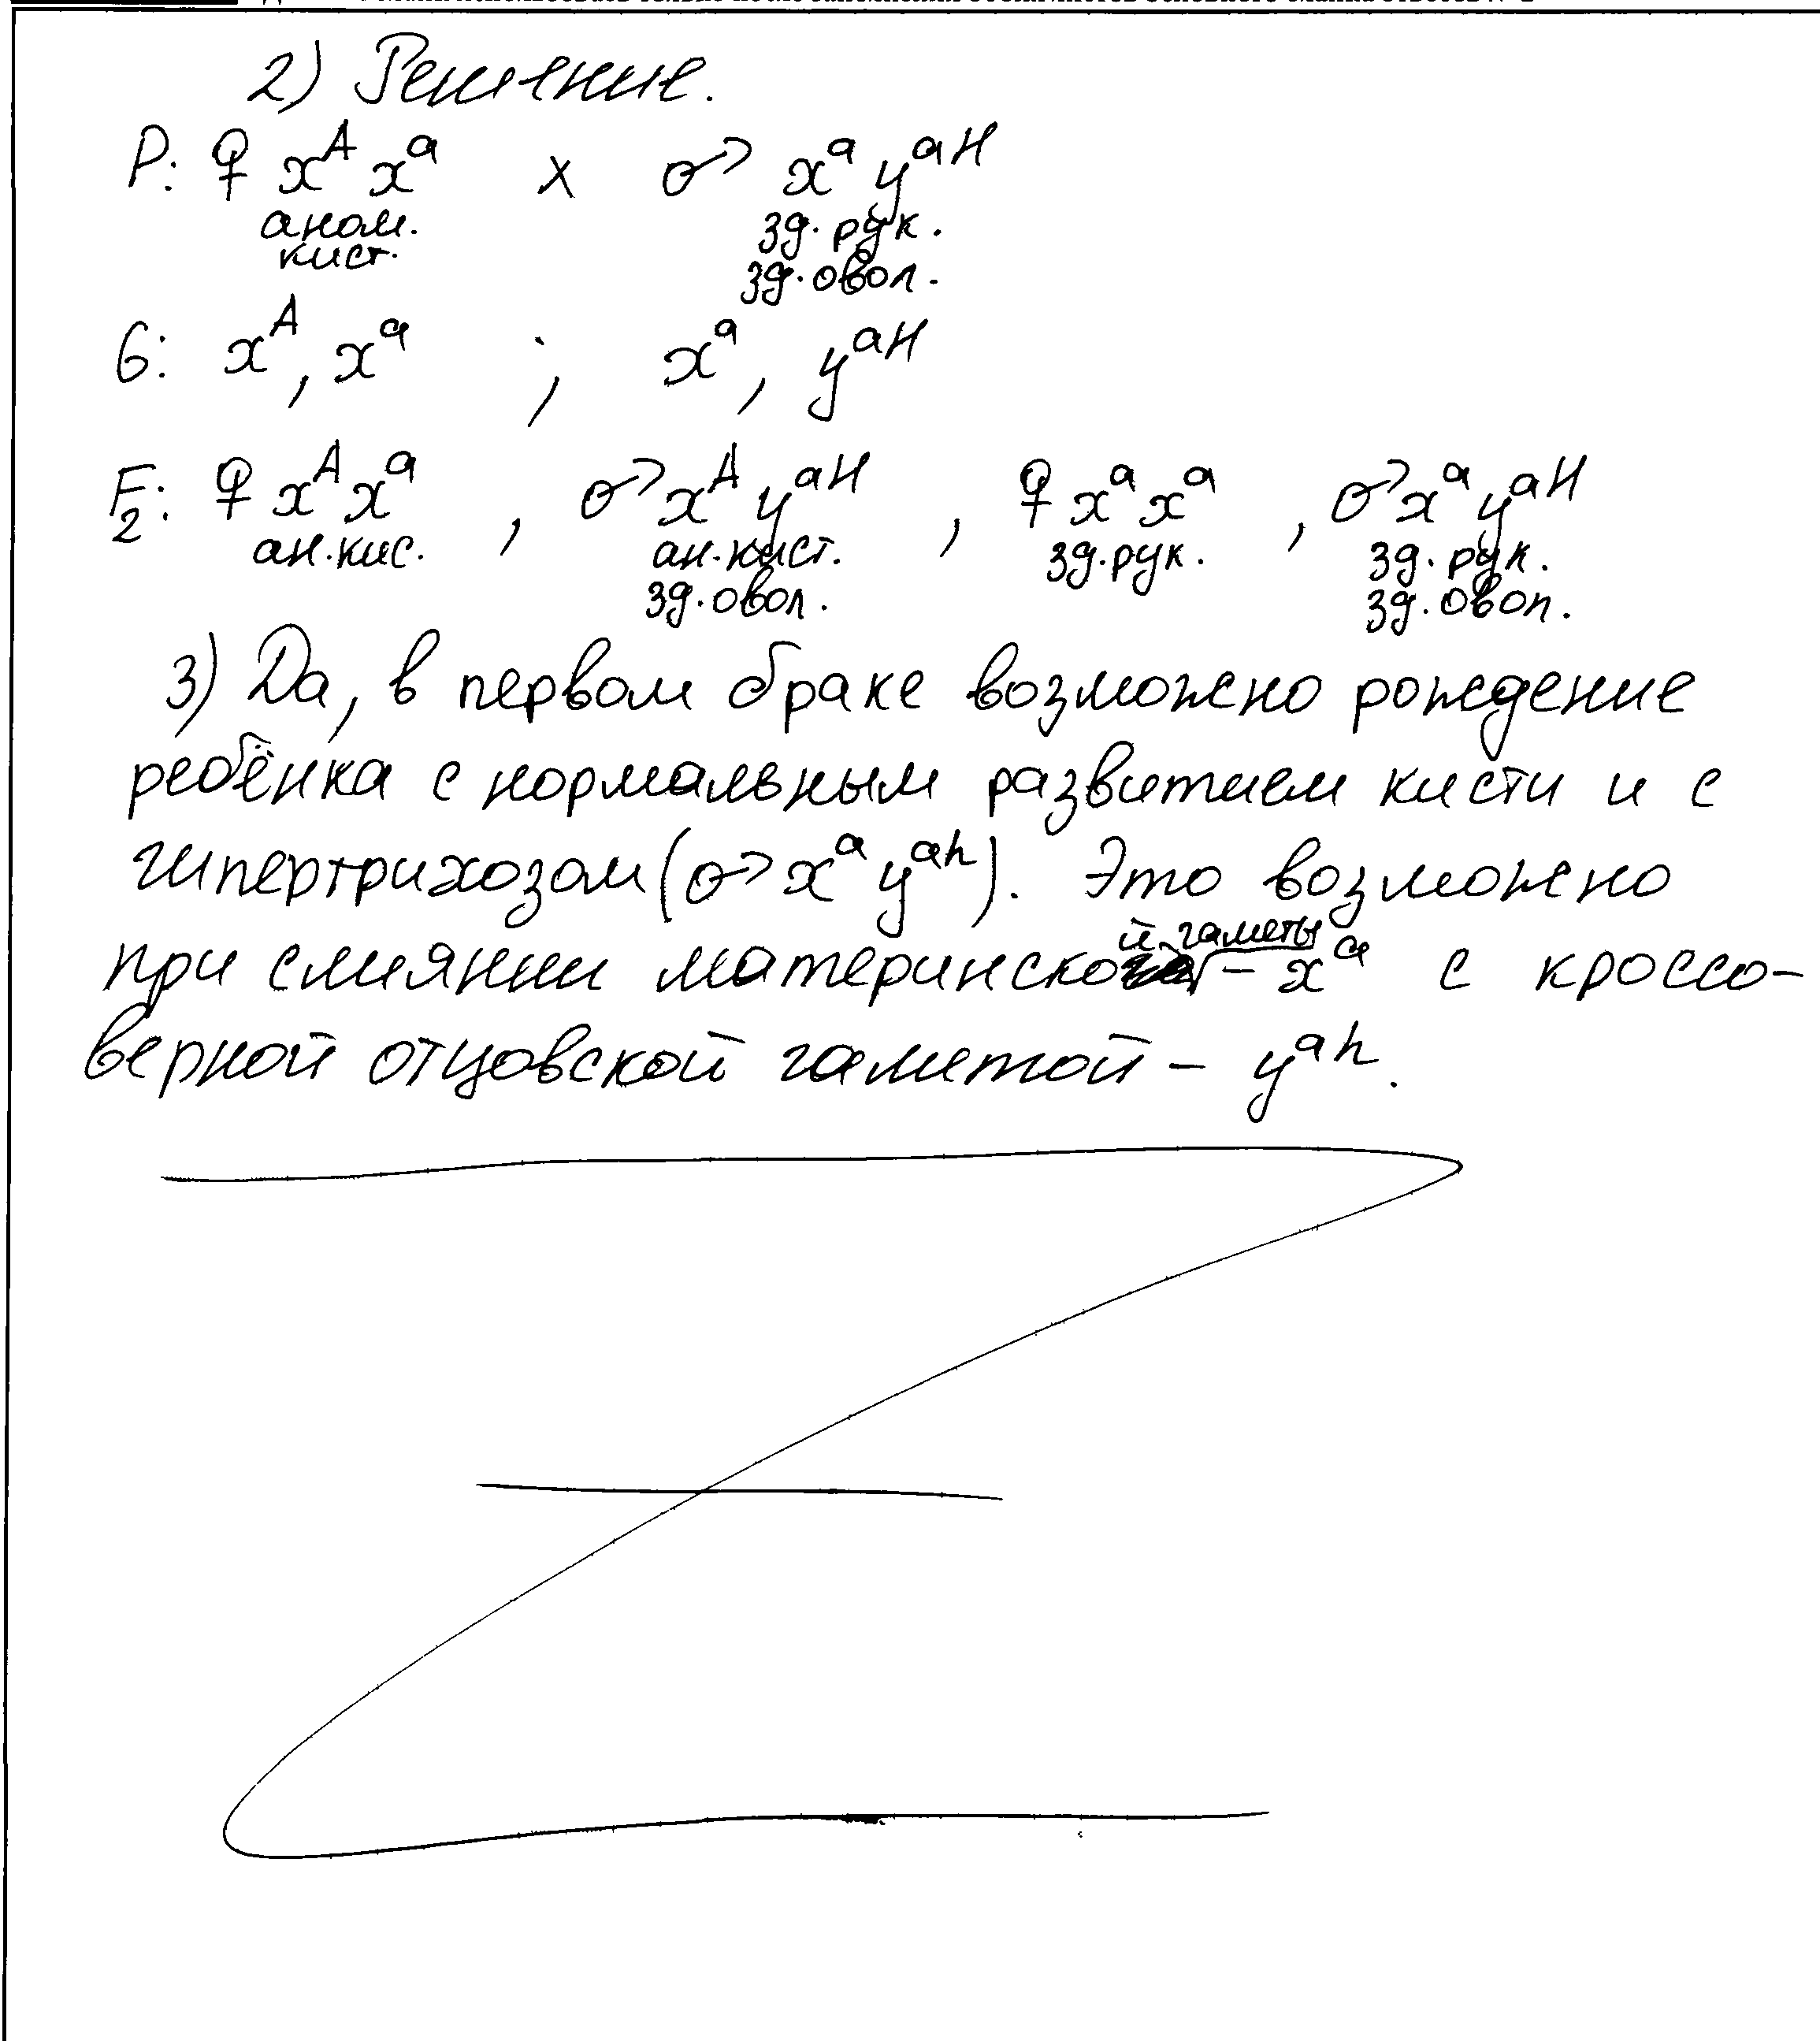 2) Решение.
P: ♀ xᴬ xᵃ × ♂ xᵃ yᵃᴴ
аном. зд. рук.
кист. зд. овол.
G: xᴬ, xᵃ ; xᵃ, yᵃᴴ
F₂: ♀ xᴬ xᵃ, ♂ xᴬ yᵃᴴ, ♀ xᵃ xᵃ, ♂ xᵃ yᵃᴴ
ан. кис. ан. кист. зд. рук. зд. рук.
зд. овол. зд. овол.
3) Да, в первом браке возможно рождение
ребёнка с нормальным развитием кисти и с
гипертрихозом (♂ xᵃ yᵃʰ). Это возможно
при слиянии материнской гаметы – xᵃ с кроссо-
верной отцовской гаметой – yᵃʰ.